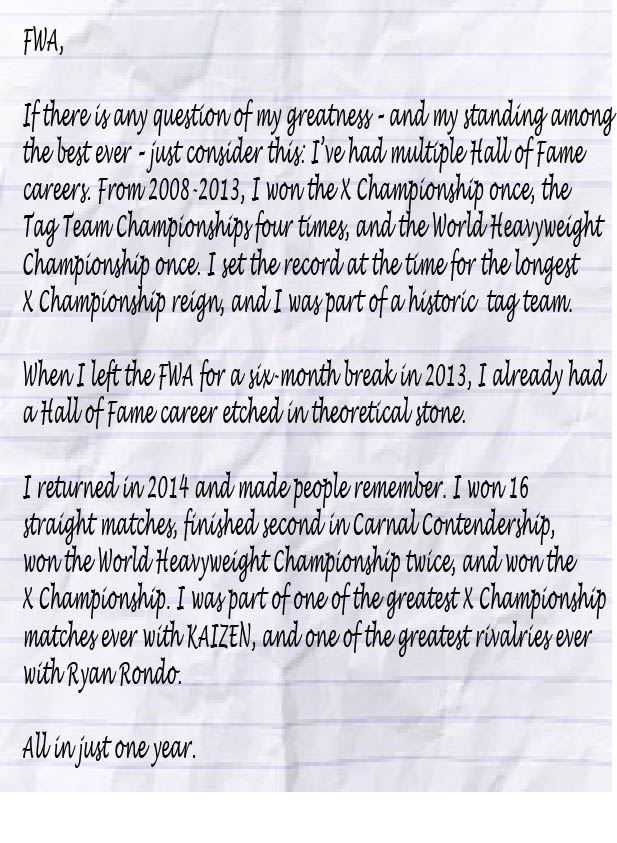 FWA,
If there is any question of my greatness - and my standing among
the best ever - just consider this: I've had multiple Hall of Fame
careers. From 2008-2013, I won the X Championship once, the
Tag Team Championships four times, and the World Heavyweight
Championship once. I set the record at the time for the longest
X Championship reign, and I was part of a historic tag team.
When I left the FWA for a six-month break in 2013, I already had
a Hall of Fame career etched in theoretical stone.
I returned in 2014 and made people remember. I won 16
straight matches, finished second in Carnal Contendership,
won the World Heavyweight Championship twice, and won the
X Championship. I was part of one of the greatest X Championship
matches ever with KAIZEN, and one of the greatest rivalries ever
with Ryan Rondo.
All in just one year.